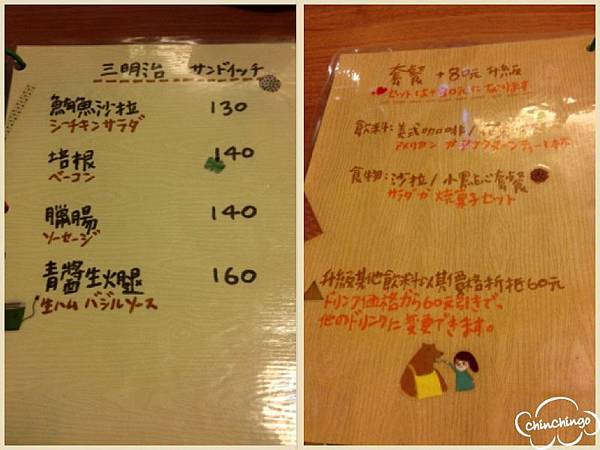 三明治 サンドイッチ
鮪魚沙拉 130
シーチキンサラダ
培根 140
ベーコン
臘腸 140
ソーセージ
青醬生火腿 160
生ハム バジルソース
套餐 +80元 升級
セットは+80元になります
飲料:美式咖啡/
アメリカン か
食物:沙拉/小點心套餐
サラダか 焼菓子セット
升級其他飲料以其價格折抵60元
ドリンク価格から60元引きで、
他のドリンクに変更できます。
chinchingo